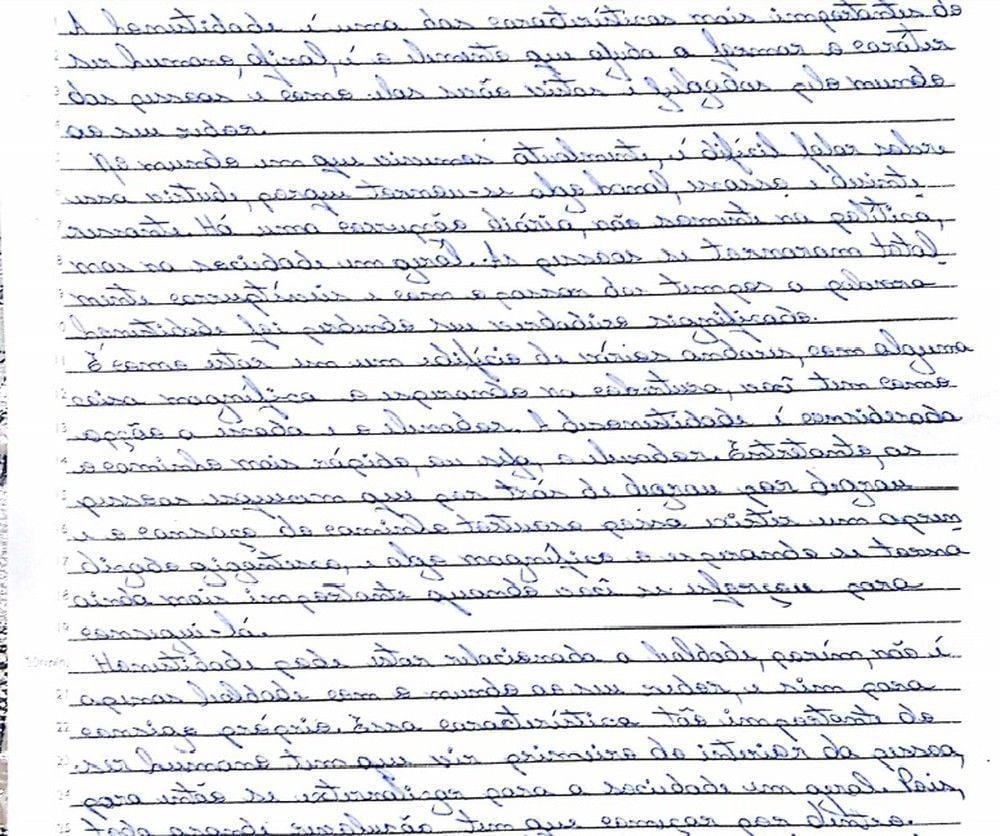 A Honestidade é uma das características mais importantes do
ser humano, afinal, é o elemento que ajuda a formar o caráter
das pessoas e como elas serão vistas e julgadas pelo mundo
ao seu redor.
No mundo em que vivemos atualmente, é difícil falar sobre
essa virtude, porque tornou-se algo banal, escasso e desinte
ressante. Há uma corrupção diária, não somente na política,
mas na sociedade em geral. As pessoas se tornaram total
mente corruptíveis e com o passar do tempo a palavra
honestidade foi perdendo seu verdadeiro significado.
É como estar em um edifício de vários andares, com alguma
coisa magnífica o esperando na cobertura, você tem como
opção a escada e o elevador. A desonestidade é considerada
o caminho mais rápido, ou seja, o elevador. Entretanto, as
pessoas esquecem que por trás de degrau por degrau
e o cansaço do caminho
dizado gigantesco, e algo magnífico o esperando se torna
ainda mais importante quando você se esforçou para
consegui-lá.
Honestidade pode estar relacionada a lealdade, porém, não é
apenas lealdade com o mundo ao seu redor, e sim para
consigo próprio. Essa característica tão importante do
ser humano tem que vir primeiro do interior da pessoa,
para então se exteriorizar para a sociedade em geral. Pois,
toda revolução tem que começar por dentro.